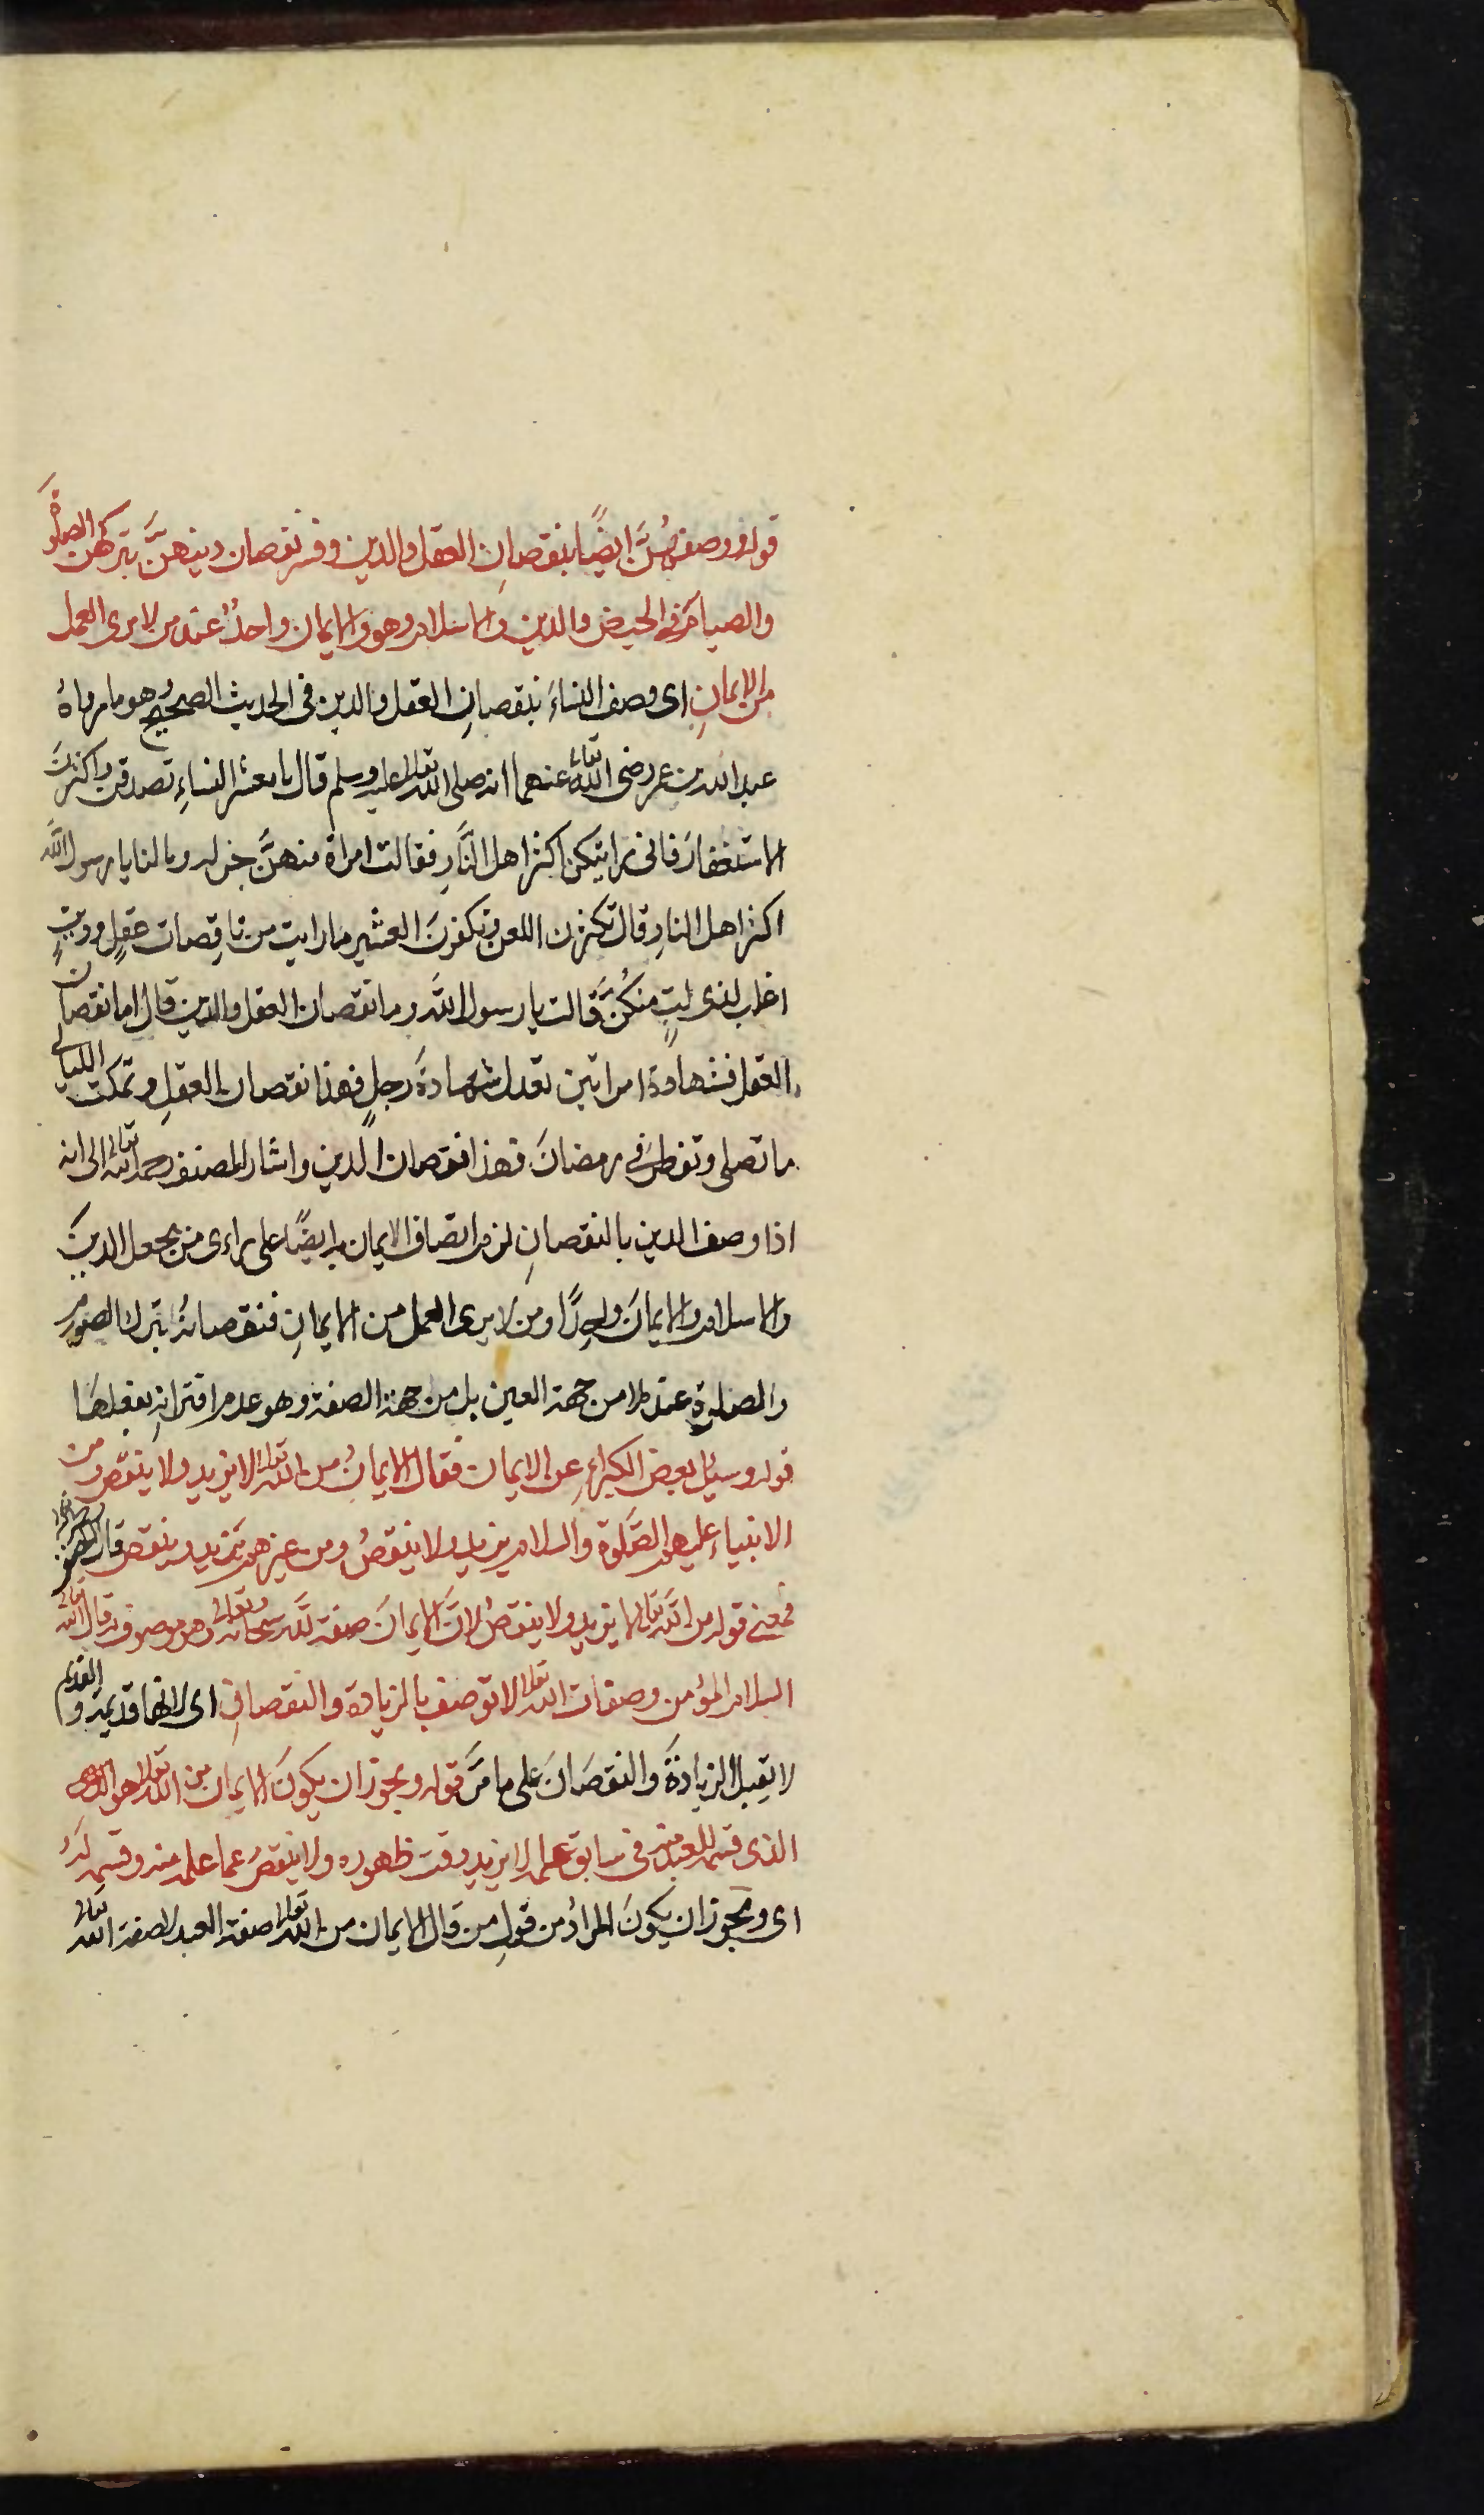 قوله ووصفهُنَّ ايضًا بنقصانِ العقل والدين وفسر نقصان دينهنَّ بتركهن الصلوةَ
والصيام في الحيض والدين والاسلام وهو والايمان واحدٌ عند من لا يرى العمل
من الايمانِ اى وصف النساءَ بنقصانِ العقل والدين في الحديث الصحيح وهو ما رواهُ
عبد الله بن عمر رضى الله تعالى عنهما انه صلى الله تعالى عليه وسلم قال يا معشر النساءِ تصدقن واكثرنَ
الاستغفارَ فانى رايتكن اكثر اهل النَّارِ فقالت امراة منهنَّ جزلة وما لنا يا رسول اللَّه
اكثر اهل النارِ قال تكثرن اللعن وتكفرنَ العشير ما رايت من ناقِصات عقلٍ ودينٍ
اغلب لذى لبٍ منكُنَّ قالت يا رسول اللَّه وما نقصان العقل والدين قال اما نقصان
العقل فشهادة امراتين تعدل شهادةَ رجلٍ فهذا نقصان العقلِ وتمكث الليالى
ما تصلى وتفطر في رمضانَ فهذا نقصان الدين واشار المصنف رحمه الله تعالى الى انه
اذا وصف الدين بالنقصانِ لزم اتصاف الايمان به ايضًا على راى من يجعل الدين
والاسلام والايمانَ واحِدًا ومن لا يرى العمل من الايمانِ فنقصانهُ بترك الصوم
والصلوةِ عنده لا من جهة العين بل من جهة الصفة وهو عدم اقترانهِ بفعلهَا
قوله وسئل بعض الكبراءِ عن الايمان فقال الايمانُ من الله تعالى لا يزيد ولا ينقص ومن
الانبياءِ عليهم الصَّلوة والسلام يزيد ولا ينقصُ ومن غيرهم يَزيد وينقص قال المصنف
فمعنى قوله من اللَّه تعالى لا يزيد ولا ينقصُ لانَّ الايمانَ صفة للَّه سبحانه وتعالى وهو موصوف به قال الله تعالى
السلام المؤمن وصفات الله تعالى لا توصف بالزيادة والنقصانِ اى لانها قديمة والقديم
لا يقبل الزيادةَ والنقصَانَ على ما مَّر قوله ويجوز ان يكونَ الايمان من الله تعالى هو
الذى قسمه للعبد منه في سابق علمه لا يزيد وقت ظهوره ولا ينقصُ عما علمه منه وقسمه لهُ
اى ويجوز ان يكونَ المرادُ من قولِ من قال الايمان من الله تعالى صفة العبد لا صفة الله تعالى